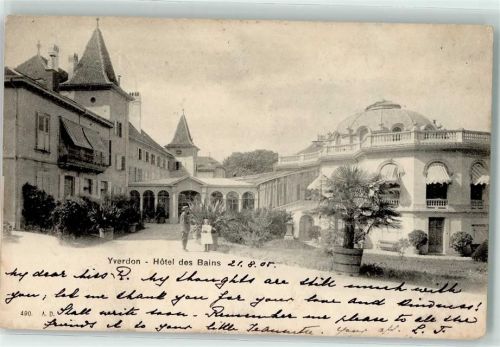 Yverdon - Hôtel des Bains 21.8.05.
My dear Miss R. My thoughts are still much with
you, let me thank you for your love and kindness!
Shall write soon. Remember me please to all the
friends & to your little Jeannette. Your aff. L. F.
490. A. D.